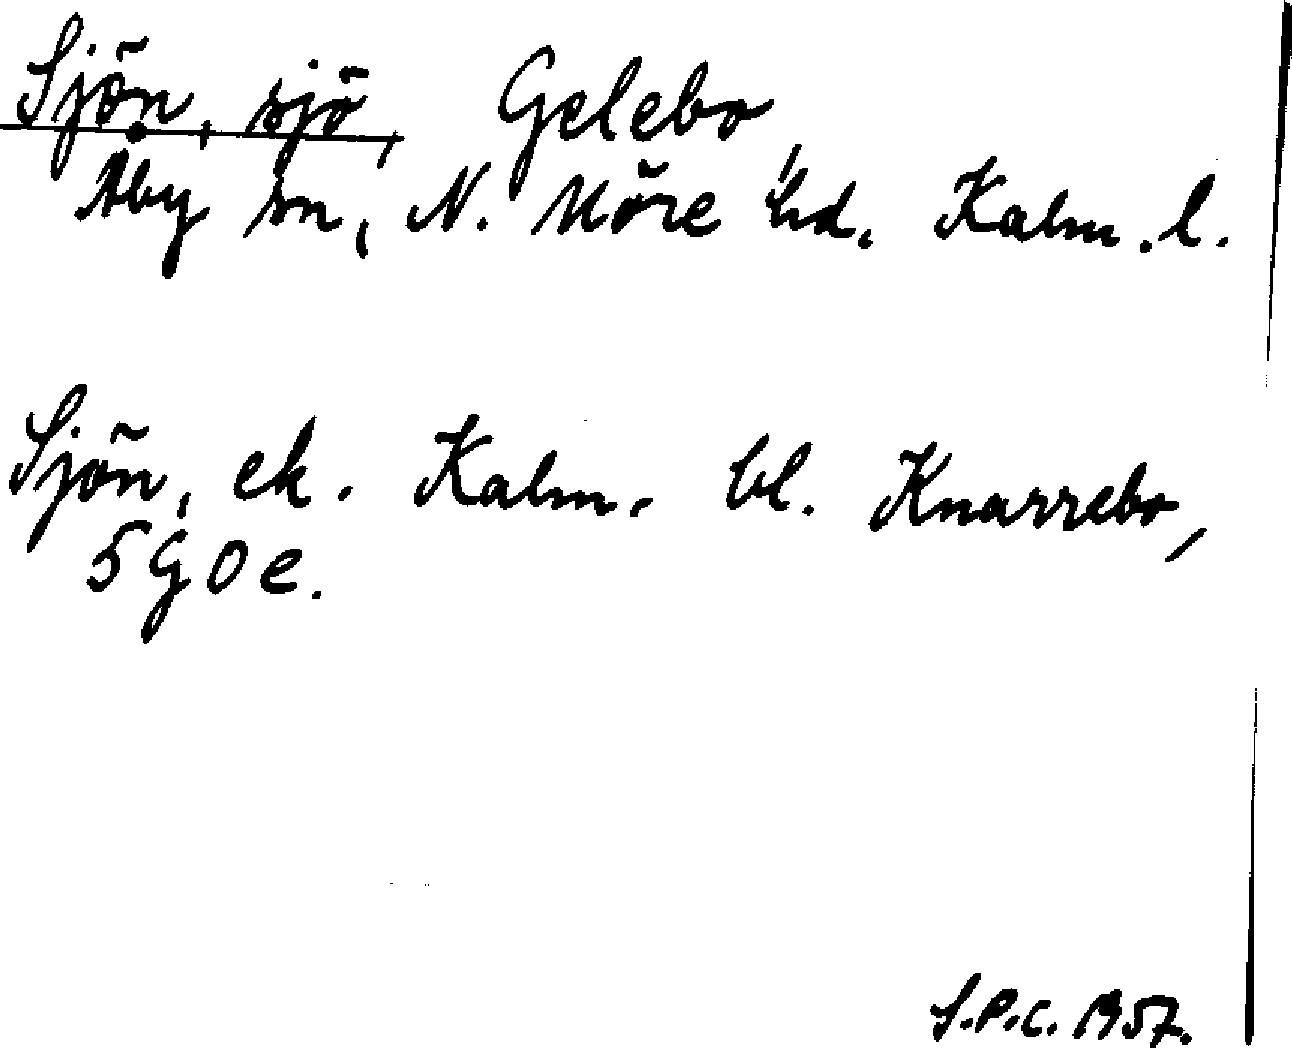 Sjön, sjö, Gelebo,
Åby sn, N. Möre hd. Kalm. l.
Sjön, ek. Kalm. bl. Knarrebo,
5 G 0 e.
S.P.C. 1957.